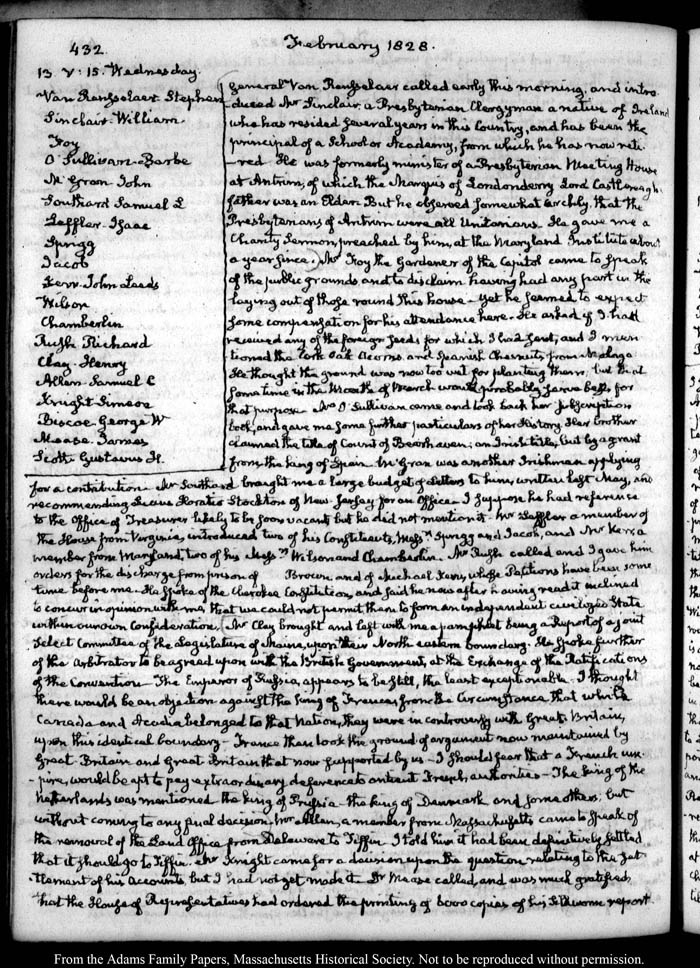 432.
February 1828.
13. V: 15. Wednesday.
Van Rensselaer Stephen
Sinclair William
Foy
O'Sullivan Barbe
McGran John
Southard Samuel L
Leffler Isaac
Sprigg
Jacob
Kerr John Leeds
Wilson
Chamberlin
Rush Richard
Clay Henry
Allen Samuel C
Knight Simeon
Biscoe George W
Mease James
Scott Gustavus H.
General Van Rensselaer called early this morning, and intro-
duced Mr Sinclair, a Presbyterian Clergyman a native of Ireland
who has resided several years in this Country, and has been the
principal of a School or Academy, from which he has now reti-
-red. He was formerly minister of a Presbyterian Meeting House
at Antrim, of which the Marquis of Londonderry Lord Castlereagh's
father was an Elder. But he observed somewhat archly that the
Presbyterians of Antrim were all Unitarians. He gave me a
Charity Sermon, preached by him, at the Maryland Institute about
a year since. Mr Foy the Gardener of the Capitol came to speak
of the public grounds and to disclaim having had any part in the
laying out of those round this house. Yet he seemed to expect
some compensation for his attendance here. He asked if I had
received any of the foreign seeds for which I had sent, and I men
tioned the Cork Oak acorns and Spanish Chesnuts from Malaga
He thought the ground was now too wet for planting them, but that
some time in the Month of March would probably serve best for
that purpose. Mrs O'Sullivan came and took back her subscription
book, and gave me some further particulars of her History. Her brother
claimed the title of Count of Bearhaven; an Irish title, but by a grant
from the king of Spain. McGran was another Irishman applying
for a contribution. Mr Southard brought me a large budget of Letters to him, written last May, and
recommending Lucius Horatio Stockton of New-Jersey for an Office. I suppose he had reference
to the Office of Treasurer likely to be soon vacant but he did not mention it. Mr Leffler a member of
the House from Virginia, introduced two of his Constituents, Messrs Sprigg and Jacob, and Mr Kerr, a
member from Maryland, two of his Messrs Wilson and Chamberlin. Mr Rush called and I gave him
orders for the discharge from prison of Brown and of Michael Kerr, whose Petitions have been some
time before me. He spoke of the Cherokee Constitution, and said he now after having read it inclined
to concur in opinion with me, that we could not permit them to form an independent civilized State
within our own Confederation. Mr Clay brought and left with me a pamphlet being a Report of a joint
Select Committee of the Legislature of Maine, upon their North eastern boundary. He spoke further
of the Arbitrator to be agreed upon with the British Government, at the Exchange of the Ratifications
of the Convention. The Emperor of Russia, appears to be still, the least exceptionable. I thought
there would be an objection against the king of France from the Circumstance that while
Canada and Acadia belonged to that Nation, they were in controversy with Great-Britain,
upon this identical boundary. France then took the ground of argument now maintained by
Great Britain and Great Britain that now supported by us. I should fear that a French um-
-pire, would be apt to pay extraordinary deference to antient French authorities. The king of the
Netherlands was mentioned the king of Prussia the king of Denmark and some others, but
without coming to any final decision. Mr Allen, a member from Massachusetts came to speak of
the removal of the Land Office from Delaware to Tiffin. I told him it had been definitively settled
that it should go to Tiffin. Mr Knight came for a decision upon the question relating to the set
tlement of his Accounts but I had not yet made it. Dr Mease called, and was much gratified
that the House of Representatives had ordered the printing of 6000 copies of his Silkworm report
From the Adams Family Papers, Massachusetts Historical Society. Not to be reproduced without permission.